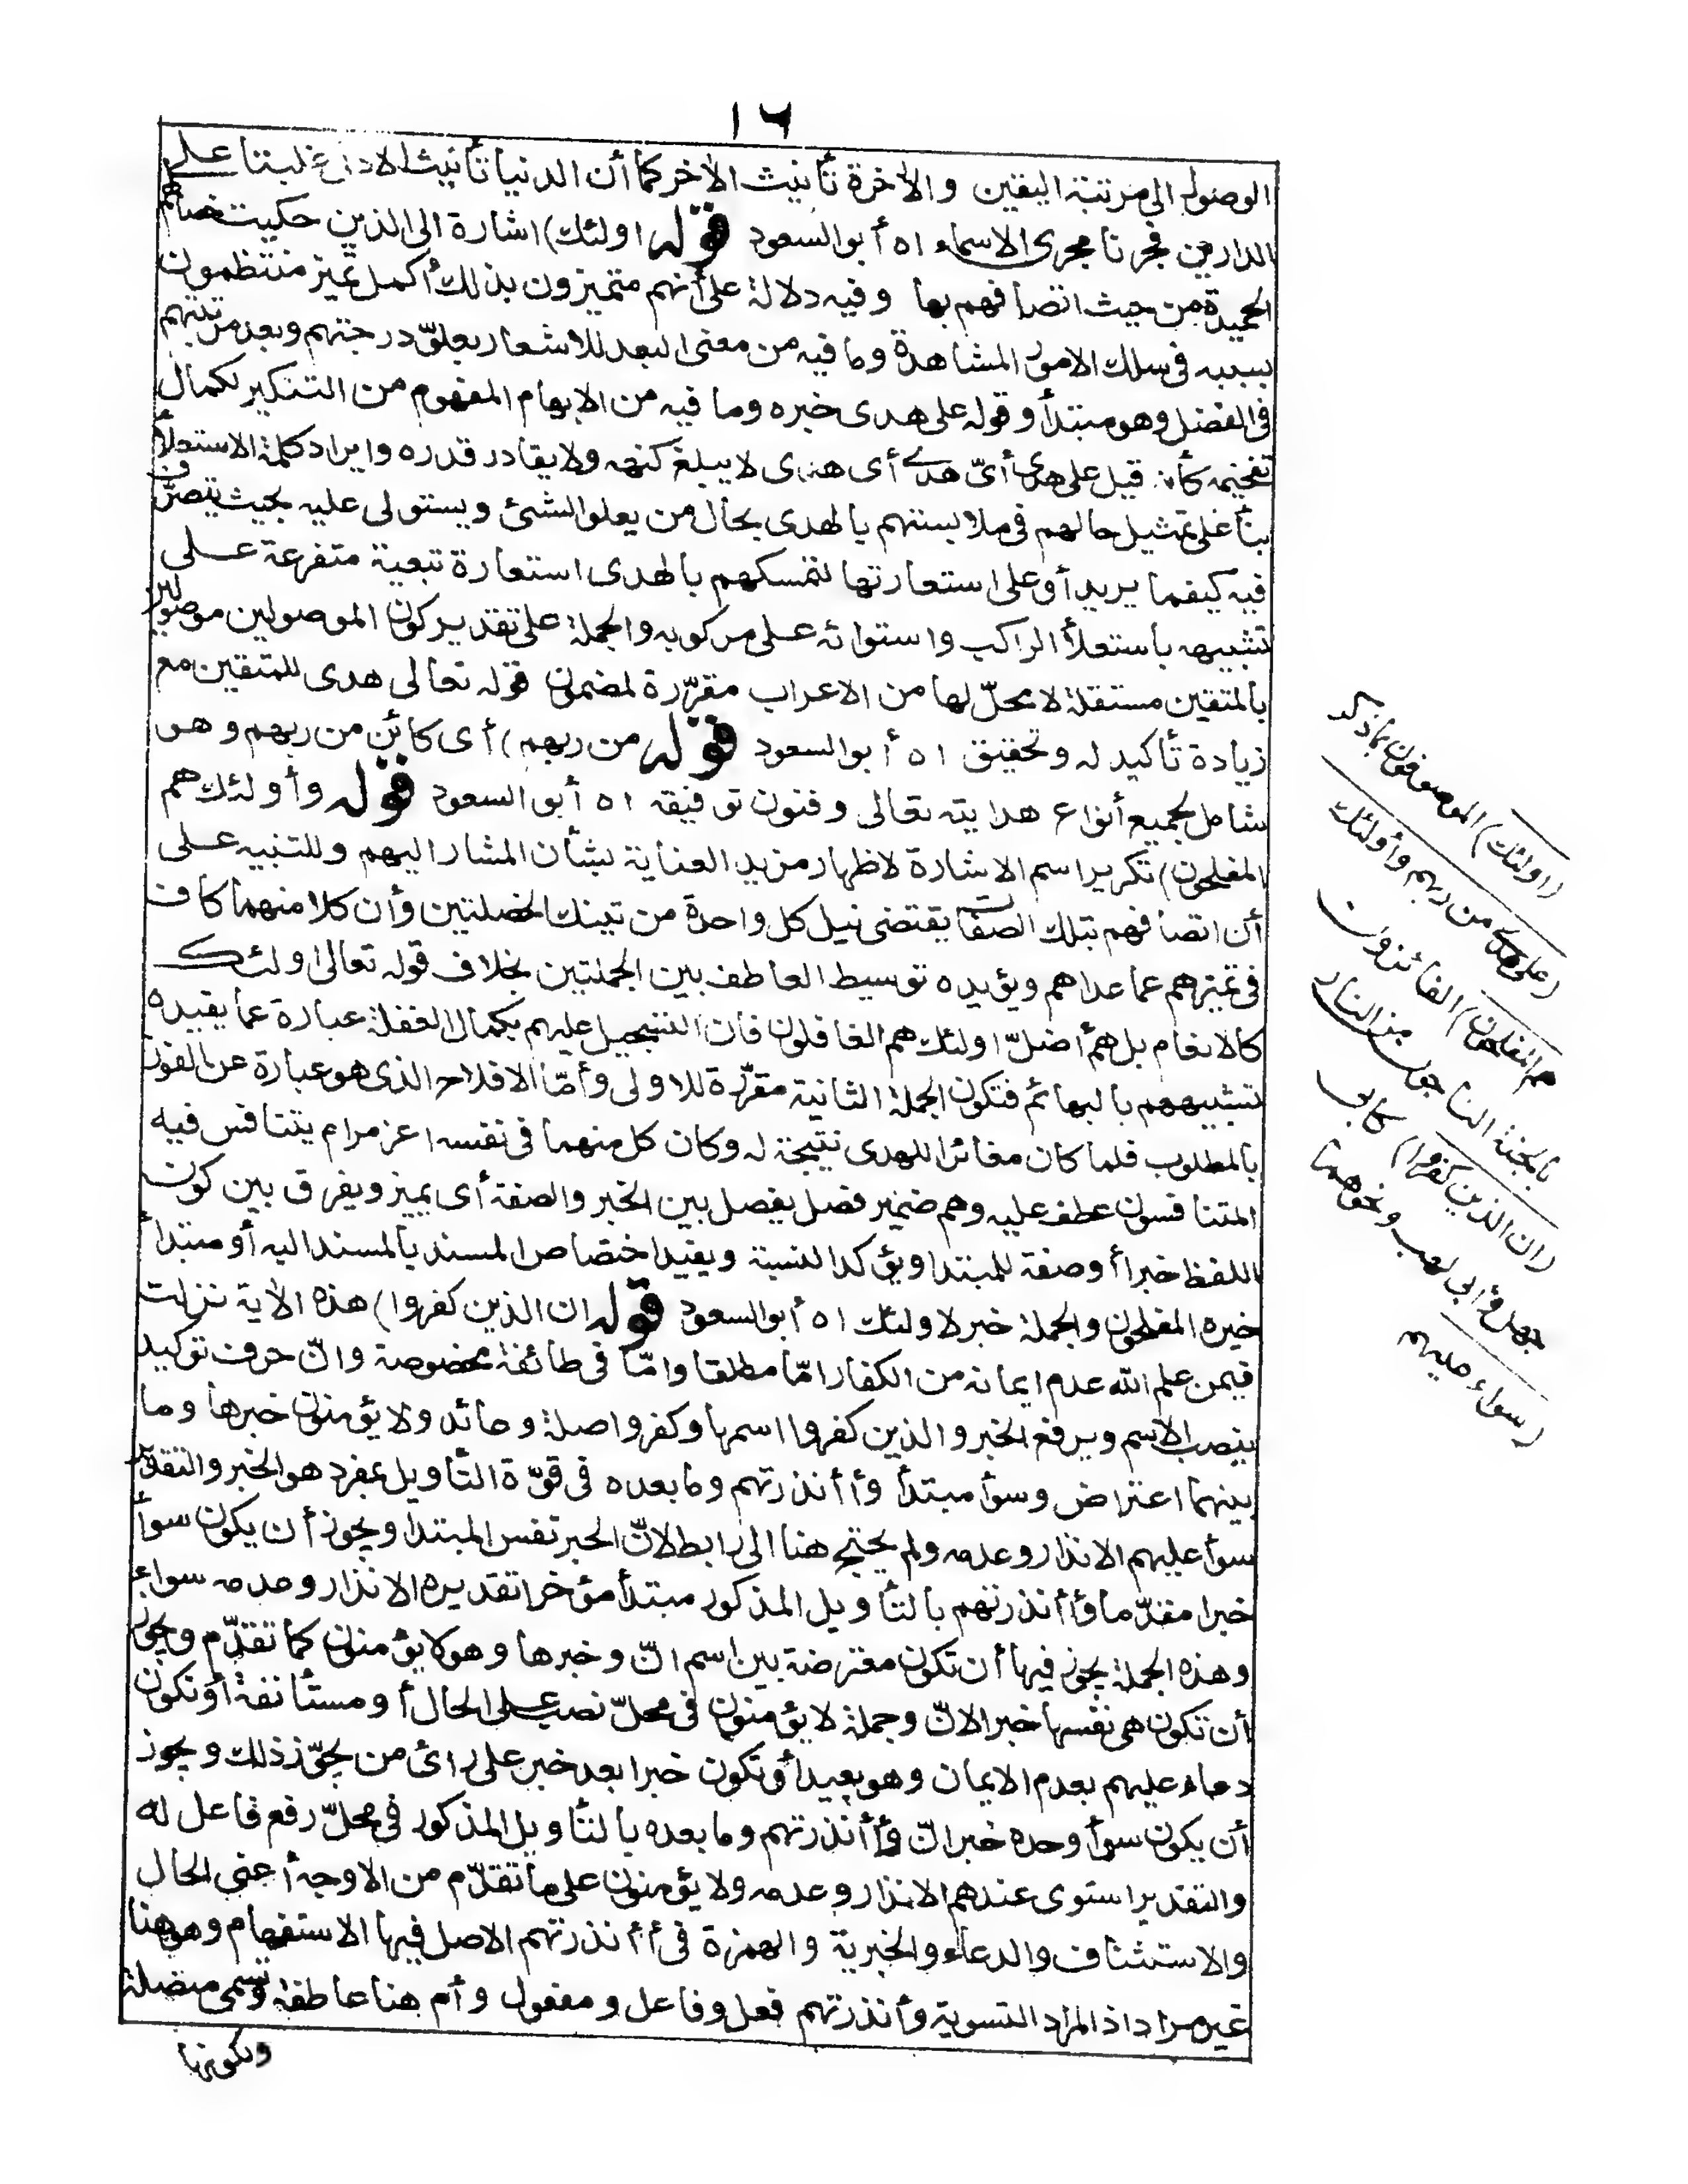 ١٦
الوصول الى مرتبة اليقين والآخرة تأنيث الآخر كما أن الدنيا تأنيث الادنى غلبتا على
الدارين فجرتا مجرى الاسماء اه أبو السعود قوله اولئك) اشارة الى الذين حكيت خصالهم
الحميدة من حيث اتصافهم بها وفيه دلالة على أنهم متميزون بذلك أكمل تميز منتظمون
بسببه فى سلك الامور المشاهدة وما فيه من معنى البعد للاشعار بعلوّ درجتهم وبعد مرتبتهم
فى الفضل وهو مبتدأ وقوله على هدى خبره وما فيه من الابهام المفهوم من التنكير لكمال
تفخيمه كأنه قيل على هدى أىّ هدى أى هدى لا يبلغ كنهه ولا يقادر قدره وايراد كلمة الاستعلأ
بنأ على تمثيل حالهم فى ملابستهم بالهدى بحال من يعلو الشئ ويستولى عليه بحيث يتصرّف
فيه كيفما يريد أو على استعارتها لتمسكهم بالهدى استعارة تبعية متفرعة على
تشبيهه باستعلأ الراكب واستوائه على مركوبه والجملة على تقدير كون الموصولين موصولين
بالمتقين مستقلة لا محلّ لها من الاعراب مقرّرة لمضمون قوله تعالى هدى للمتقين مع
زيادة تأكيد له وتحقيق اه أبو السعود قوله من ربهم) أى كائن من ربهم وهو
شامل لجميع أنواع هدايته تعالى وفنون توفيقه اه أبو السعود قوله وأولئك هم
المفلحون) تكرير اسم الاشارة لاظهار مزيد العناية بشأن المشار اليهم وللتنبيه على
أن اتصافهم بتلك الصفات يقتضى نيل كل واحدة من تينك الخصلتين وأن كلا منهما كاف
فى تميزهم عما عداهم ويؤيده توسيط العاطف بين الجملتين بخلاف قوله تعالى اولئك
كالانعام بل هم أضلّ اولئك هم الغافلون فان التسجيل عليهم بكمال الغفلة عبارة عما يفيده
تشبيههم بالبهائم فتكون الجملة الثانية مقرّرة للاولى وأمّا الافلاح الذى هو عبارة عن الفوز
بالمطلوب فلما كان مغائرا للهدى نتيجة له وكان كل منهما فى نفسه اعز مرام يتنافس فيه
المتنافسون عطف عليه وهم ضمير فصل يفصل بين الخبر والصفة أى يميز ويفرق بين كون
اللفظ خبرا أو صفة للمبتدا ويؤكد النسبة ويفيد اختصاص المسند بالمسند اليه أو مبتدأ
خبره المفلحون والجملة خبر لاولئك اه أبو السعود قوله ان الذين كفروا) هذه الآية نزلت
فيمن علم الله عدم ايمانه من الكفار امّا مطلقا وامّا فى طائفة مخصوصة وانّ حرف توكيد
ينصب الاسم ويرفع الخبر والذين كفروا اسمها وكفروا صلة وعائد ولا يؤمنون خبرها وما
بينهما اعتراض وسوأ مبتدأ وأأنذرتهم وما بعده فى قوّة التأويل بمفرد هو الخبر والتقدير
سوأ عليهم الانذار وعدمه ولم يحتج هنا الى رابط لانّ الخبر نفس المبتدا ويجوز أن يكون سوأ
خبرا مقدّما وأأنذرتهم بالتأويل المذكور مبتدأ مؤخرا تقديره الانذار وعدمه سواء
وهذه الجملة يجوز فيها أن تكون معترضة بين اسم انّ وخبرها وهو لا يؤمنون كما تقدّم ويجوز
أن تكون هى نفسها خبرا لانّ وجملة لا يؤمنون فى محلّ نصب على الحال أو مستأنفة أو تكون
دعاء عليهم بعدم الايمان وهو بعيد أو تكون خبرا بعد خبر على رأى من يجوّز ذلك ويجوز
أن يكون سوأ وحده خبر انّ وأأنذرتهم وما بعده بالتأويل المذكور فى محلّ رفع فاعل له
والتقدير استوى عندهم الانذار وعدمه ولا يؤمنون على ما تقدّم من الاوجه أعنى الحال
والاستئناف والدعاء والخبرية والهمزة فى أأنذرتهم الاصل فيها الاستفهام وهو هنا
غير مراد اذ المراد التسوية وأنذرتهم فعل وفاعل ومفعول وأم هنا عاطفة وتسمى متصلة
ولكونها
(اولئك) الموصوفون بما ذكر
(على هدى من ربهم وأولئك
هم المفلحون) الفائزون
بالجنة الناجون من النار
(ان الذين كفروا) كابى
جهل وأبى لهب ونحوهما
(سواء عليهم